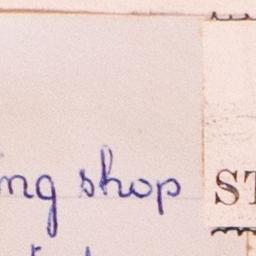 ng shop
ST